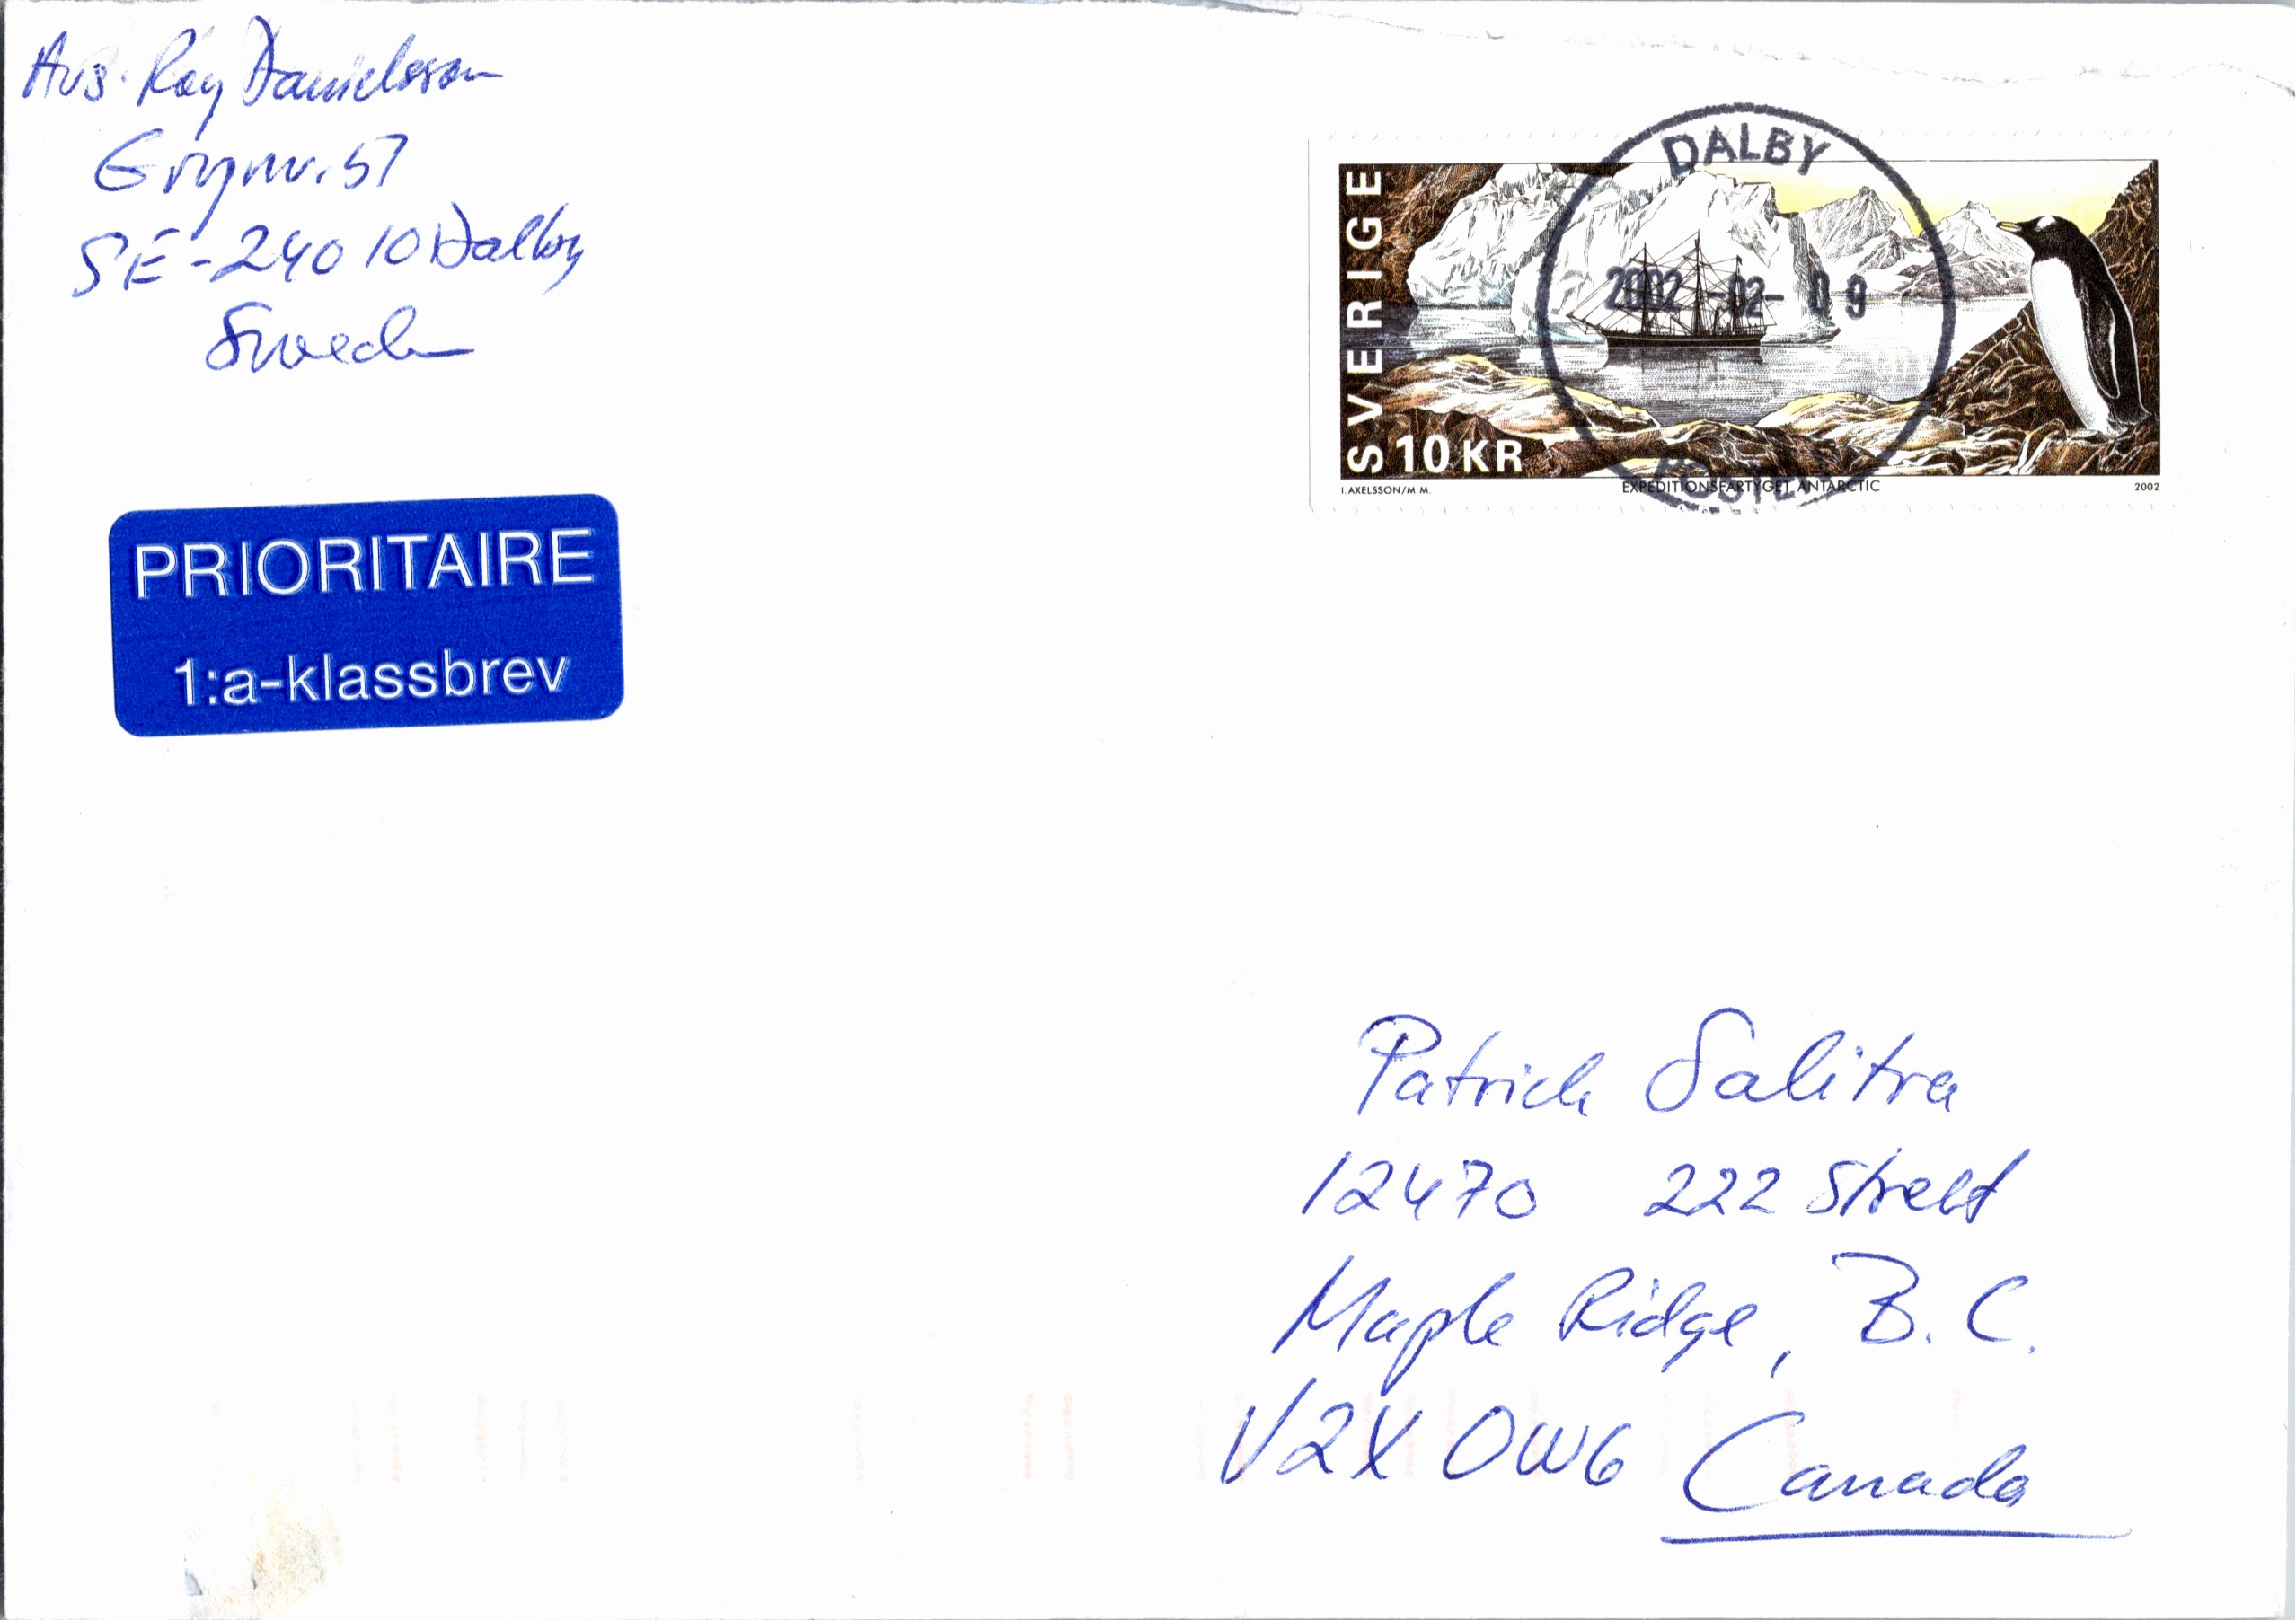 Avs. Roy Danielsson
Grynv. 57
SE-240 10 Dalby
Sweden
PRIORITAIRE
1:a-klassbrev
DALBY
2002-02-09
POSTEN
SVERIGE
10 KR
I.AXELSSON/M.M.
EXPEDITIONSFARTYGET ANTARCTIC
2002
Patrick Salitra
12470 222 Street
Maple Ridge, B.C.
V2X 0W6 Canada